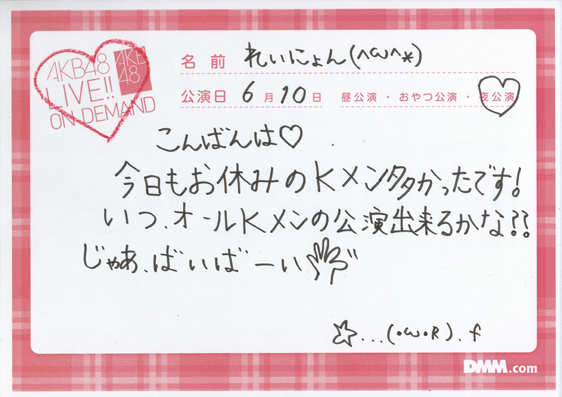 AKB48
LIVE!!
ON DEMAND
AKB
48
名前 れいにょん(^ω^*)
公演日 6月10日 昼公演・おやつ公演・夜公演
こんばんは♡
今日もお休みのKメン多かったです!
いつ、オールKメンの公演出来るかな??
じゃあ、ばいばーい
☆...(・ω・R).f
DMM.com